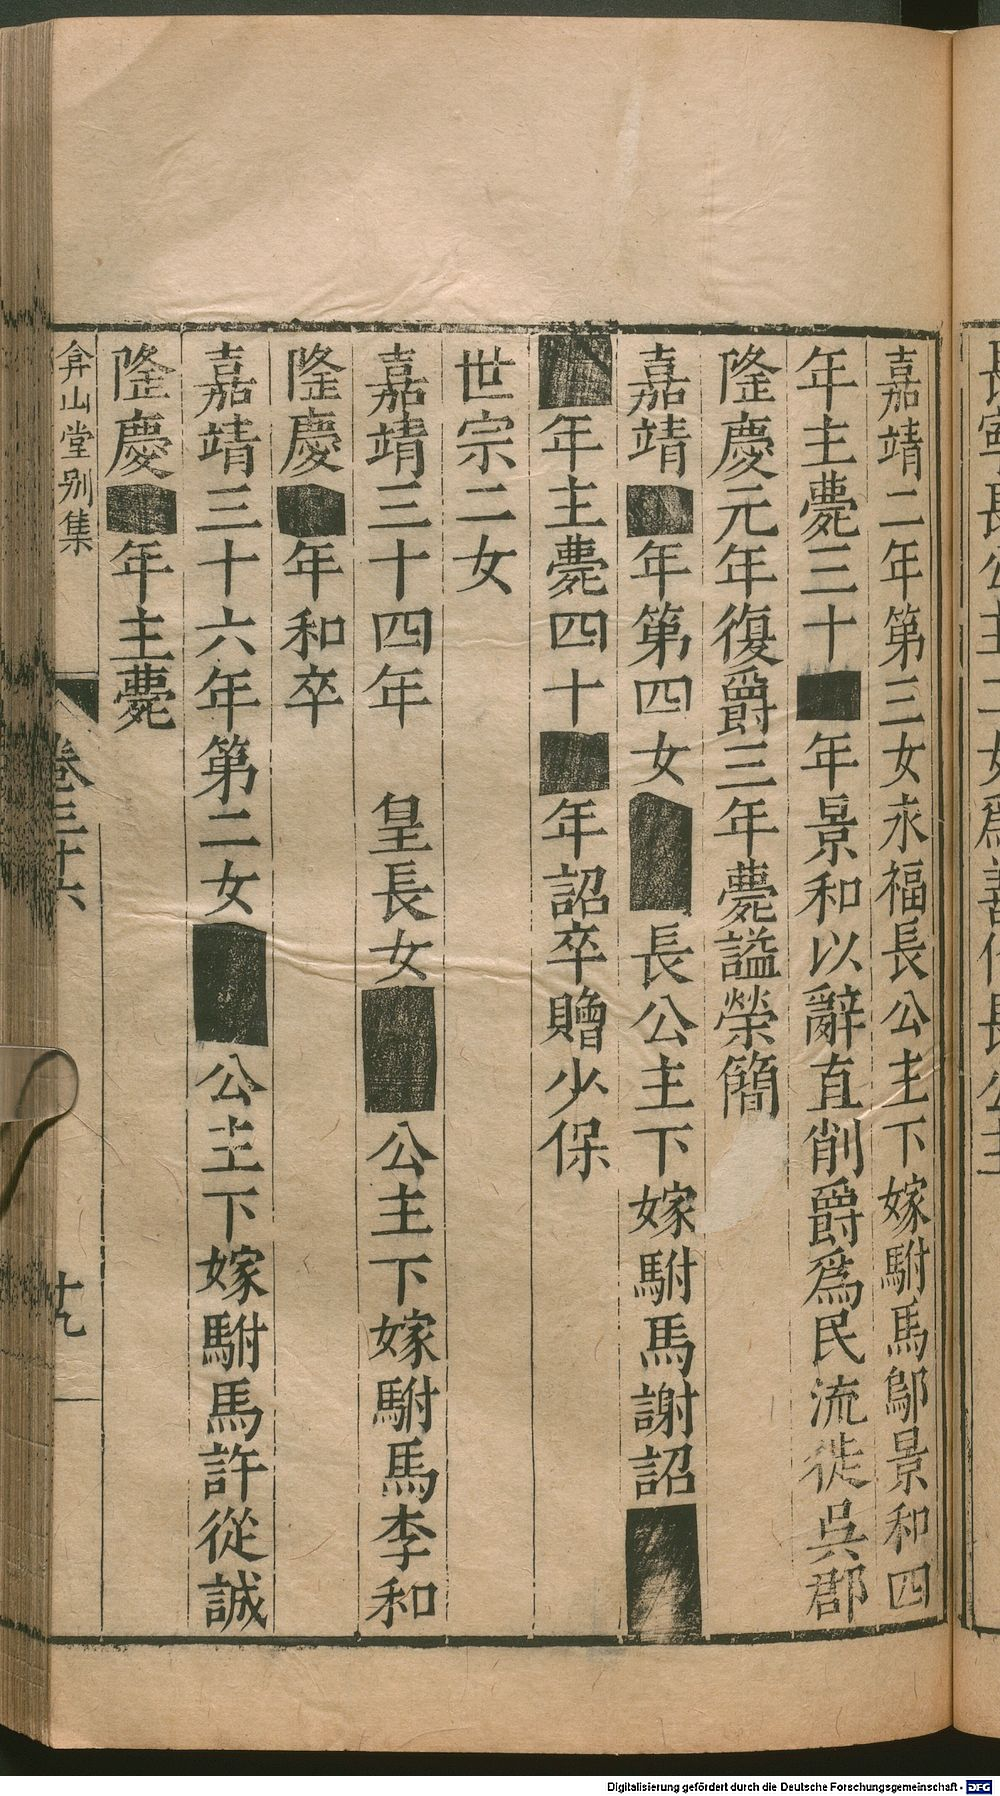 嘉靖二年第三女永福長公主下嫁駙馬鄔景和四
年主薨三十■年景和以辭直削爵爲民流徙吳郡
隆慶元年復爵三年薨謚榮簡
嘉靖■年第四女■■長公主下嫁駙馬謝詔■■
■年主薨四十■年詔卒贈少保
世宗二女
嘉靖三十四年　皇長女■■公主下嫁駙馬李和
隆慶■年和卒
嘉靖三十六年第二女■■公主下嫁駙馬許從誠
隆慶■年主薨
弇山堂别集
卷三十六
廿九
Digitalisierung gefördert durch die Deutsche Forschungsgemeinschaft - DFG